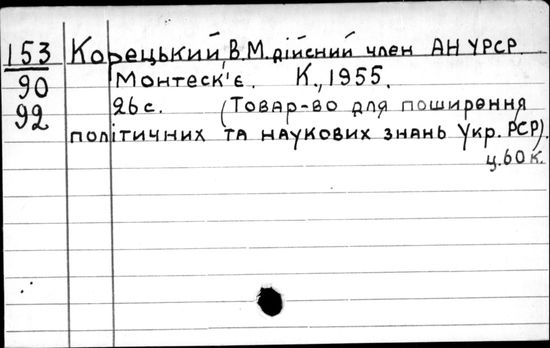 153 Корецький В.М. дійсний член АН УРСР.
90 Монтеск'є. К., 1955.
92 26 с. (Товар-во для поширення
політичних та наукових знань Укр. РСР).
ц. 60 к.